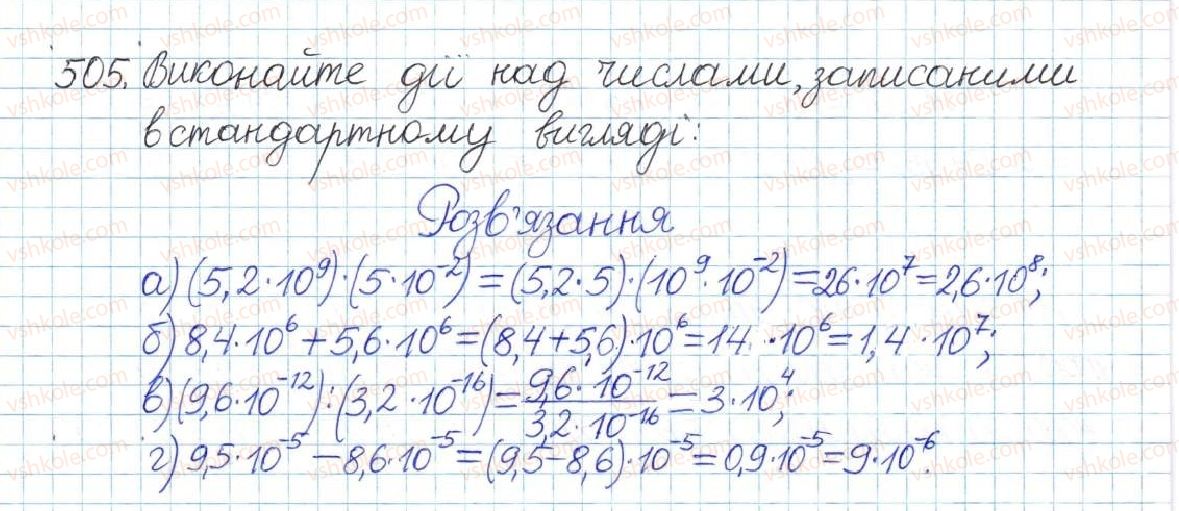 505. Виконайте дії над числами, записаними
в стандартному вигляді:
Розв'язання
а) (5,2·10⁹)·(5·10⁻²) = (5,2·5)·(10⁹·10⁻²) = 26·10⁷ = 2,6·10⁸;
б) 8,4·10⁶ + 5,6·10⁶ = (8,4+5,6)·10⁶ = 14·10⁶ = 1,4·10⁷;
в) (9,6·10⁻¹²):(3,2·10⁻¹⁶) = 9,6·10⁻¹²/3,2·10⁻¹⁶ = 3·10⁴;
г) 9,5·10⁻⁵ − 8,6·10⁻⁵ = (9,5−8,6)·10⁻⁵ = 0,9·10⁻⁵ = 9·10⁻⁶.
vshkole.com